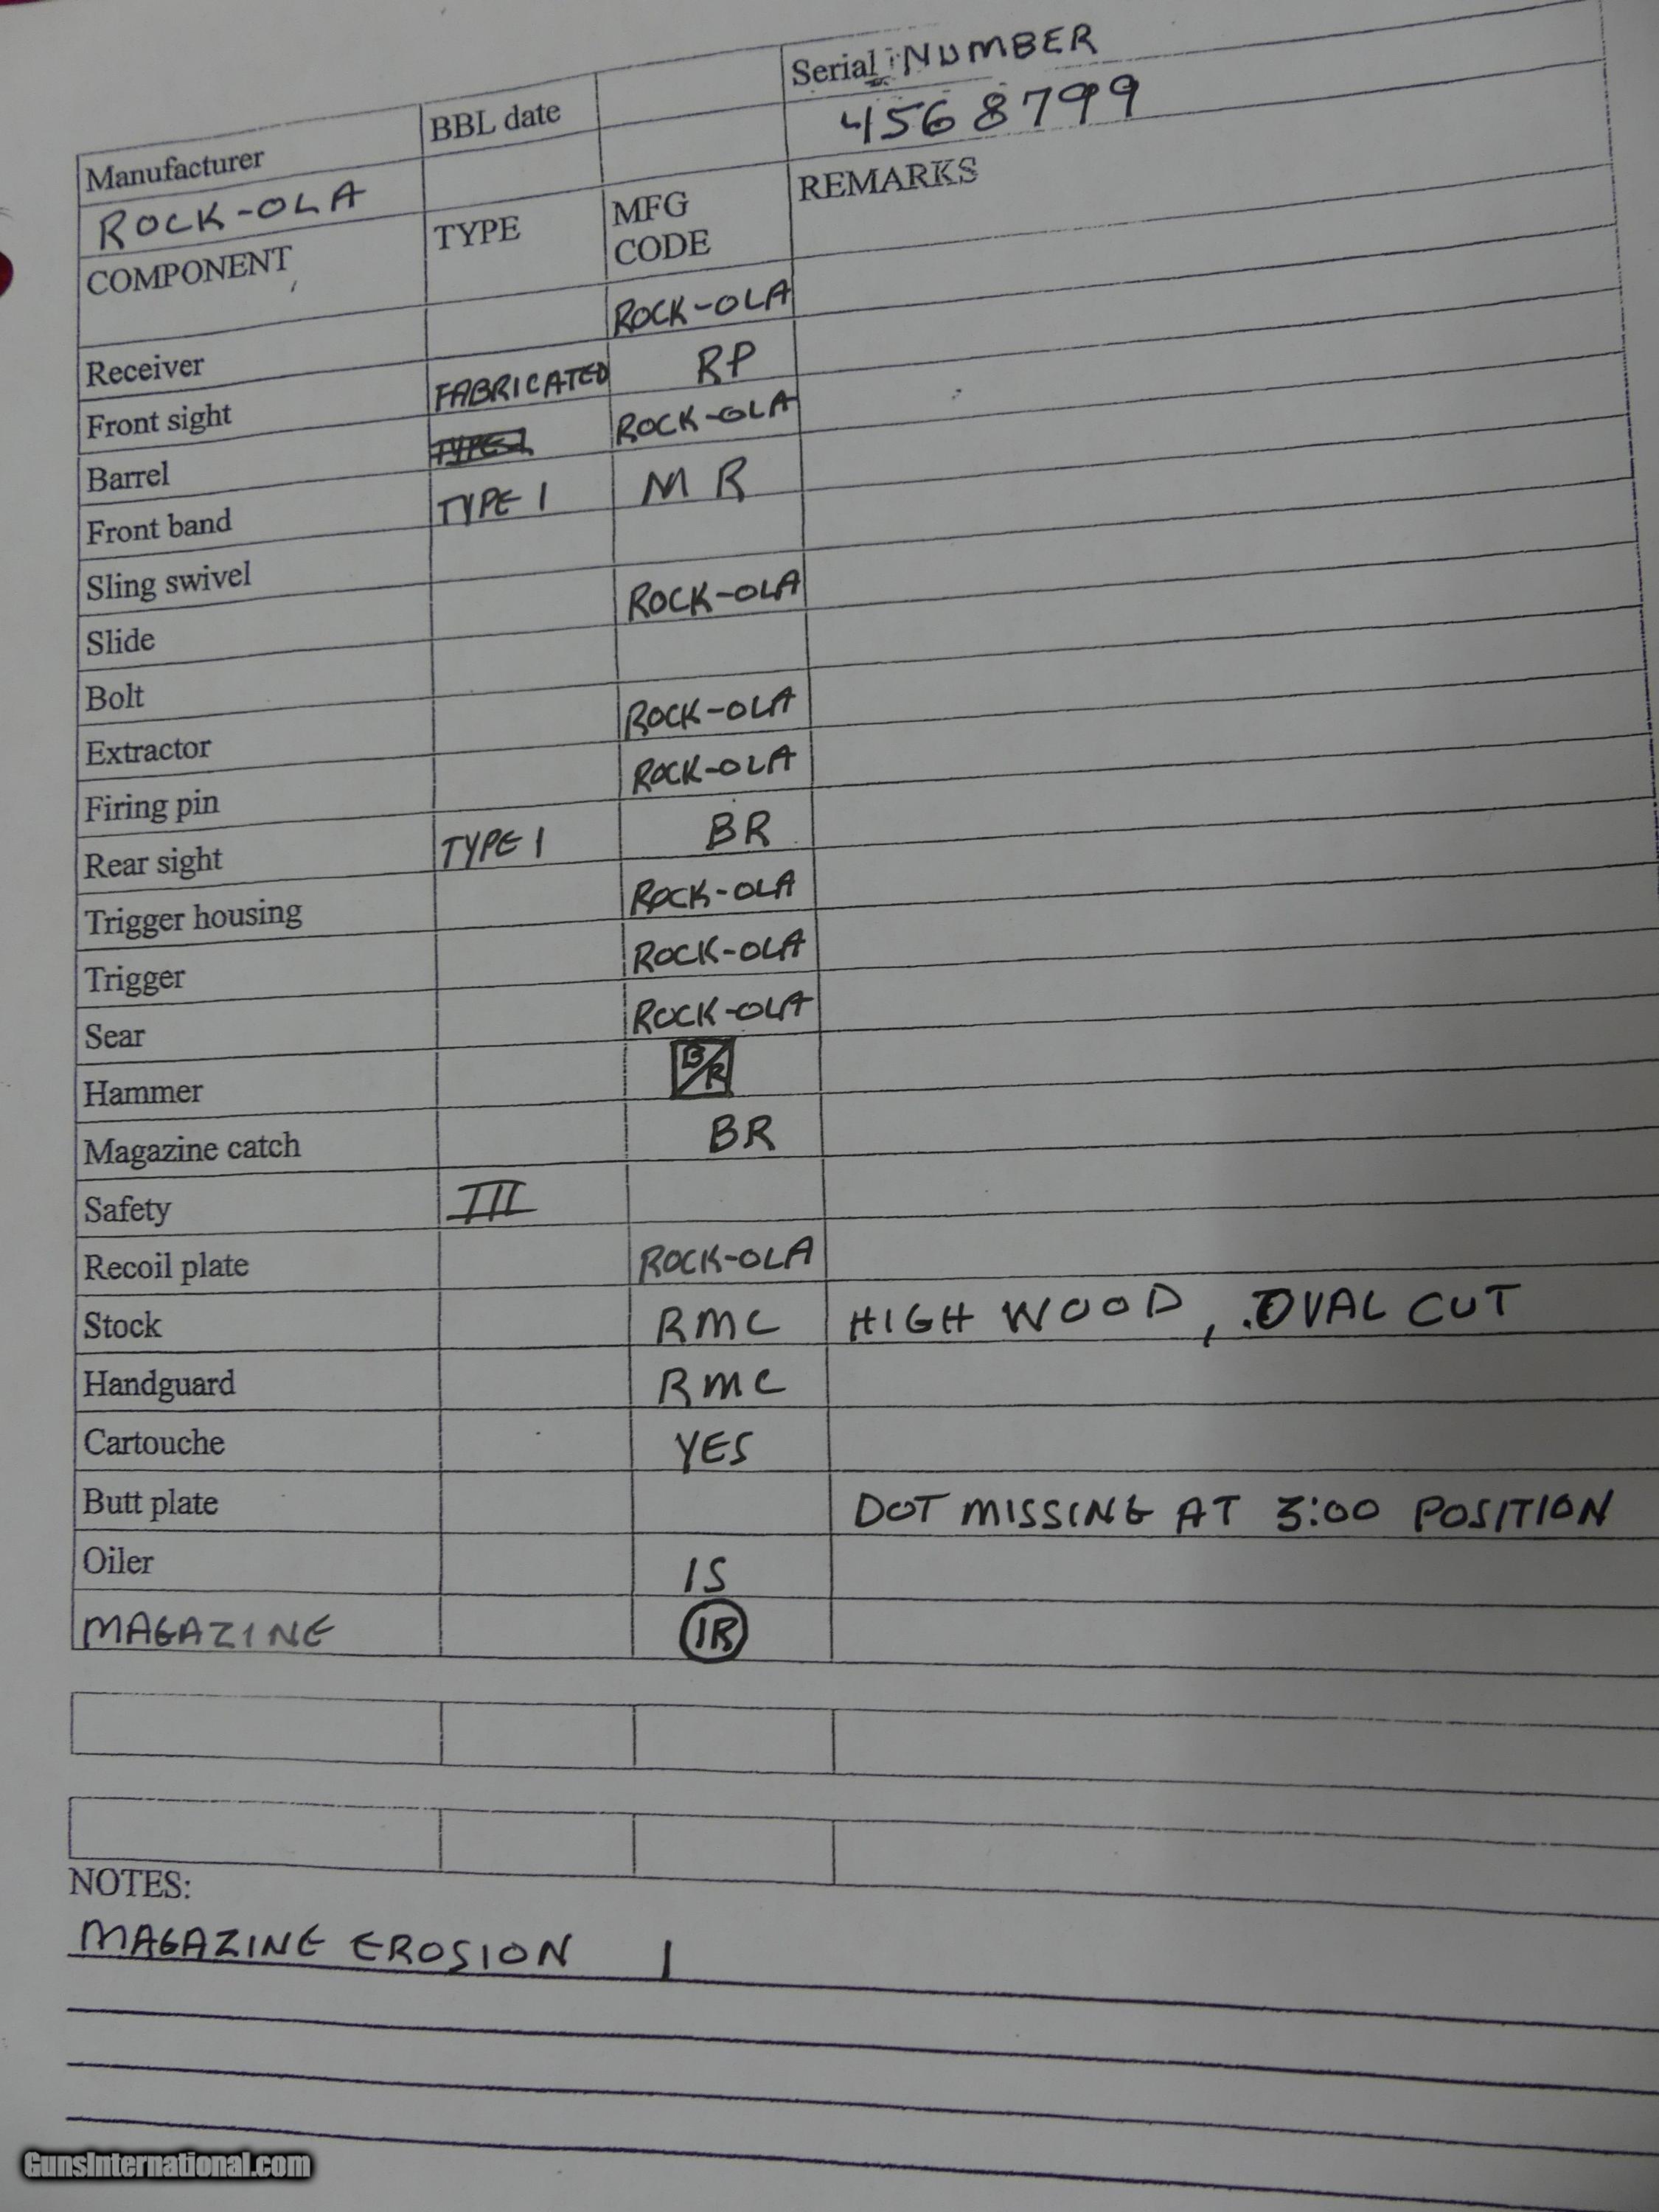 Serial NUMBER
Manufacturer BBL date 4568799
ROCK-OLA
COMPONENT TYPE MFG CODE REMARKS
Receiver ROCK-OLA
Front sight FABRICATED RP
Barrel ROCK-OLA
Front band TYPE 1 MR
Sling swivel
Slide ROCK-OLA
Bolt
Extractor ROCK-OLA
Firing pin ROCK-OLA
Rear sight TYPE 1 BR
Trigger housing ROCK-OLA
Trigger ROCK-OLA
Sear ROCK-OLA
Hammer B/R
Magazine catch BR
Safety III
Recoil plate ROCK-OLA
Stock RMC HIGH WOOD, OVAL CUT
Handguard RMC
Cartouche YES
Butt plate DOT MISSING AT 3:00 POSITION
Oiler IS
MAGAZINE IR
NOTES:
MAGAZINE EROSION 1
GunsInternational.com